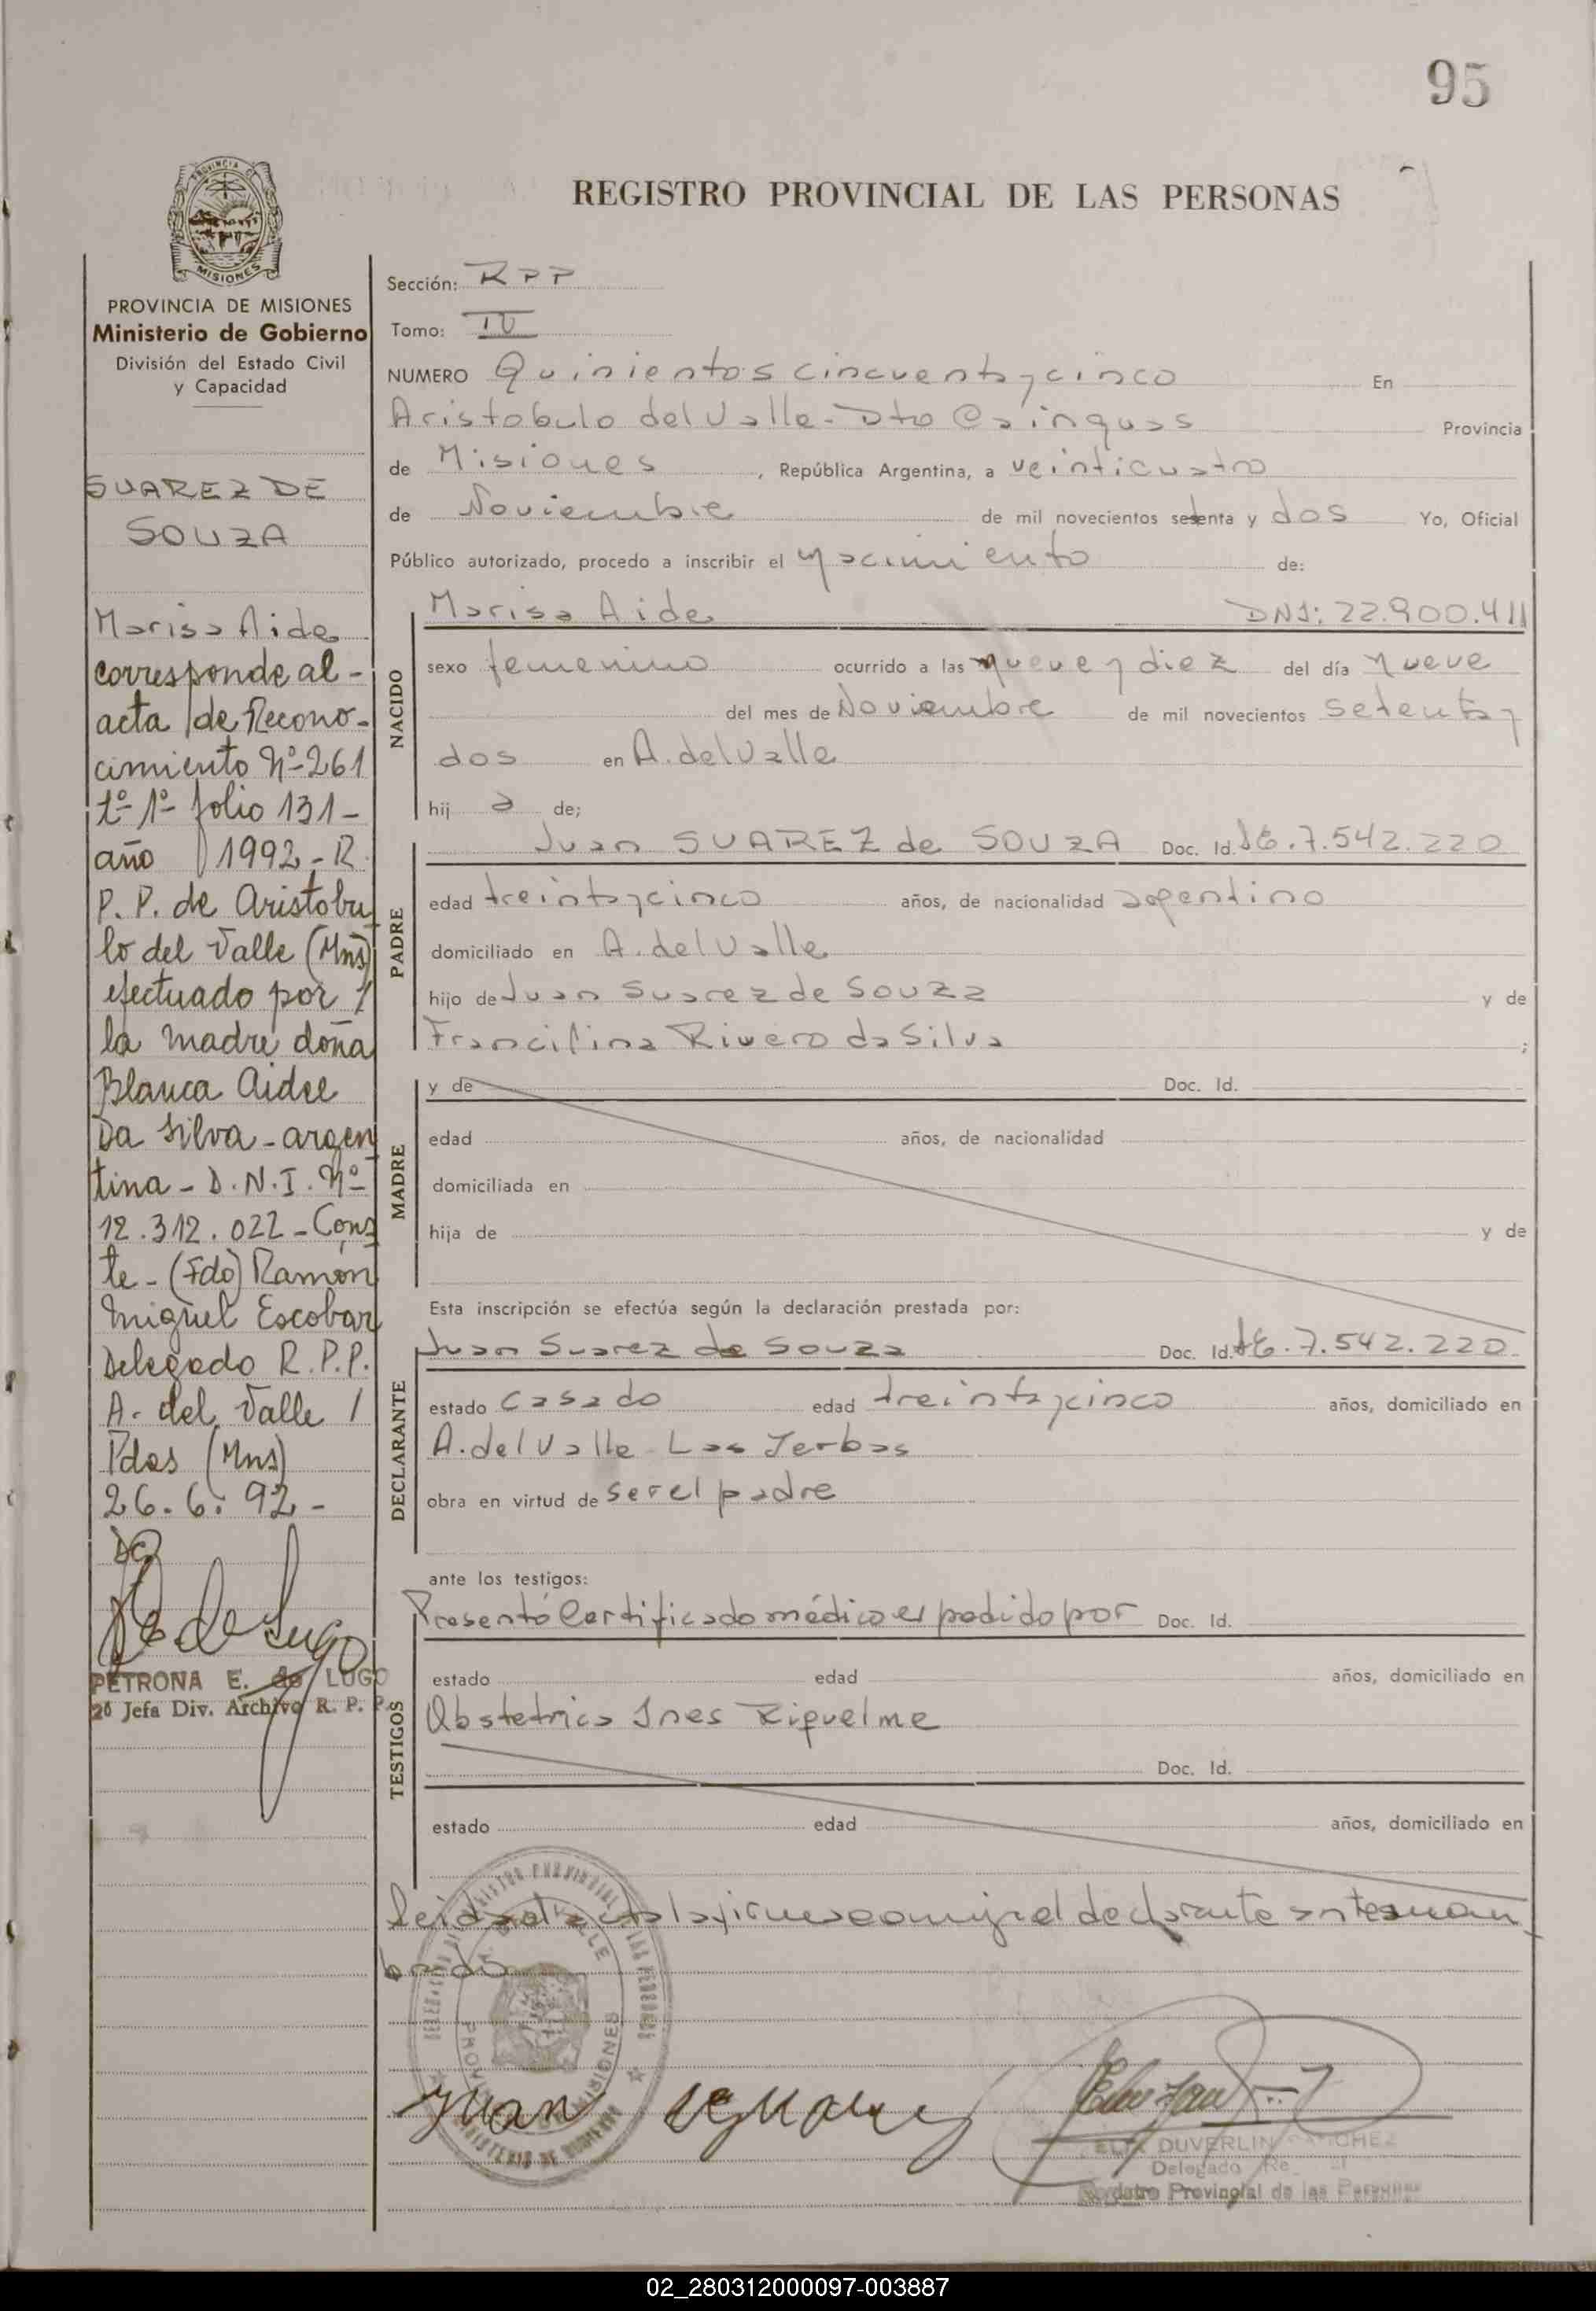 95
REGISTRO PROVINCIAL DE LAS PERSONAS
PROVINCIA DE MISIONES
Ministerio de Gobierno
División del Estado Civil
y Capacidad
SUAREZ DE
SOUZA
Marisa Aide
corresponde al -
acta de Recono-
cimiento Nº 261
tº 1º folio 131 -
año 1992 - R.
P. P. de Aristobu
lo del Valle (Mns)
efectuado por /
la madre doña
Blanca Aidee
Da Silva - argen
tina - D. N. I. Nº
12.312.022 - Cons
te - (Fdo) Ramón
Miguel Escobar
Delegado R. P. P.
A. del Valle /
Pdas (Mns)
26. 6. 92 -
PETRONA E. de LUGO
2ª Jefa Div. Archivo R. P. P.
Sección: RPP
Tomo: IV
NUMERO Quinientos cincuenta y cinco En
Aristobulo del Valle - Dto Cainguas Provincia
de Misiones , República Argentina, a veinticuatro
de Noviembre de mil novecientos setenta y dos Yo, Oficial
Público autorizado, procedo a inscribir el nacimiento de:
NACIDO
Marisa Aide DNI: 22.900.411
sexo femenino ocurrido a las nueve y diez del día nueve
del mes de Noviembre de mil novecientos setenta y
dos en A. del Valle
hij a de;
PADRE
Juan SUAREZ de SOUZA Doc. Id. LE. 7.542.220
edad treinta y cinco años, de nacionalidad argentino
domiciliado en A. del Valle
hijo de Juan Suarez de Souza y de
Rivero da Silva ;
MADRE
y de Doc. Id.
edad años, de nacionalidad
domiciliada en
hija de y de
Esta inscripción se efectúa según la declaración prestada por:
DECLARANTE
Juan Suarez de Souza Doc. Id. LE. 7.542.220
estado casado edad treinta y cinco años, domiciliado en
A. del Valle - Las Yerbas
obra en virtud de ser el padre
ante los testigos:
TESTIGOS
Presentó Certificado médico expedido por Doc. Id.
estado edad años, domiciliado en
Obstetrica Ines Riquelme
Doc. Id.
estado edad años, domiciliado en
Leida el acta la firma conmigo el declarante antes nom
brado
Juan
DUVERLIN
Delegado
Registro Provincial de las Personas
02_280312000097-003887